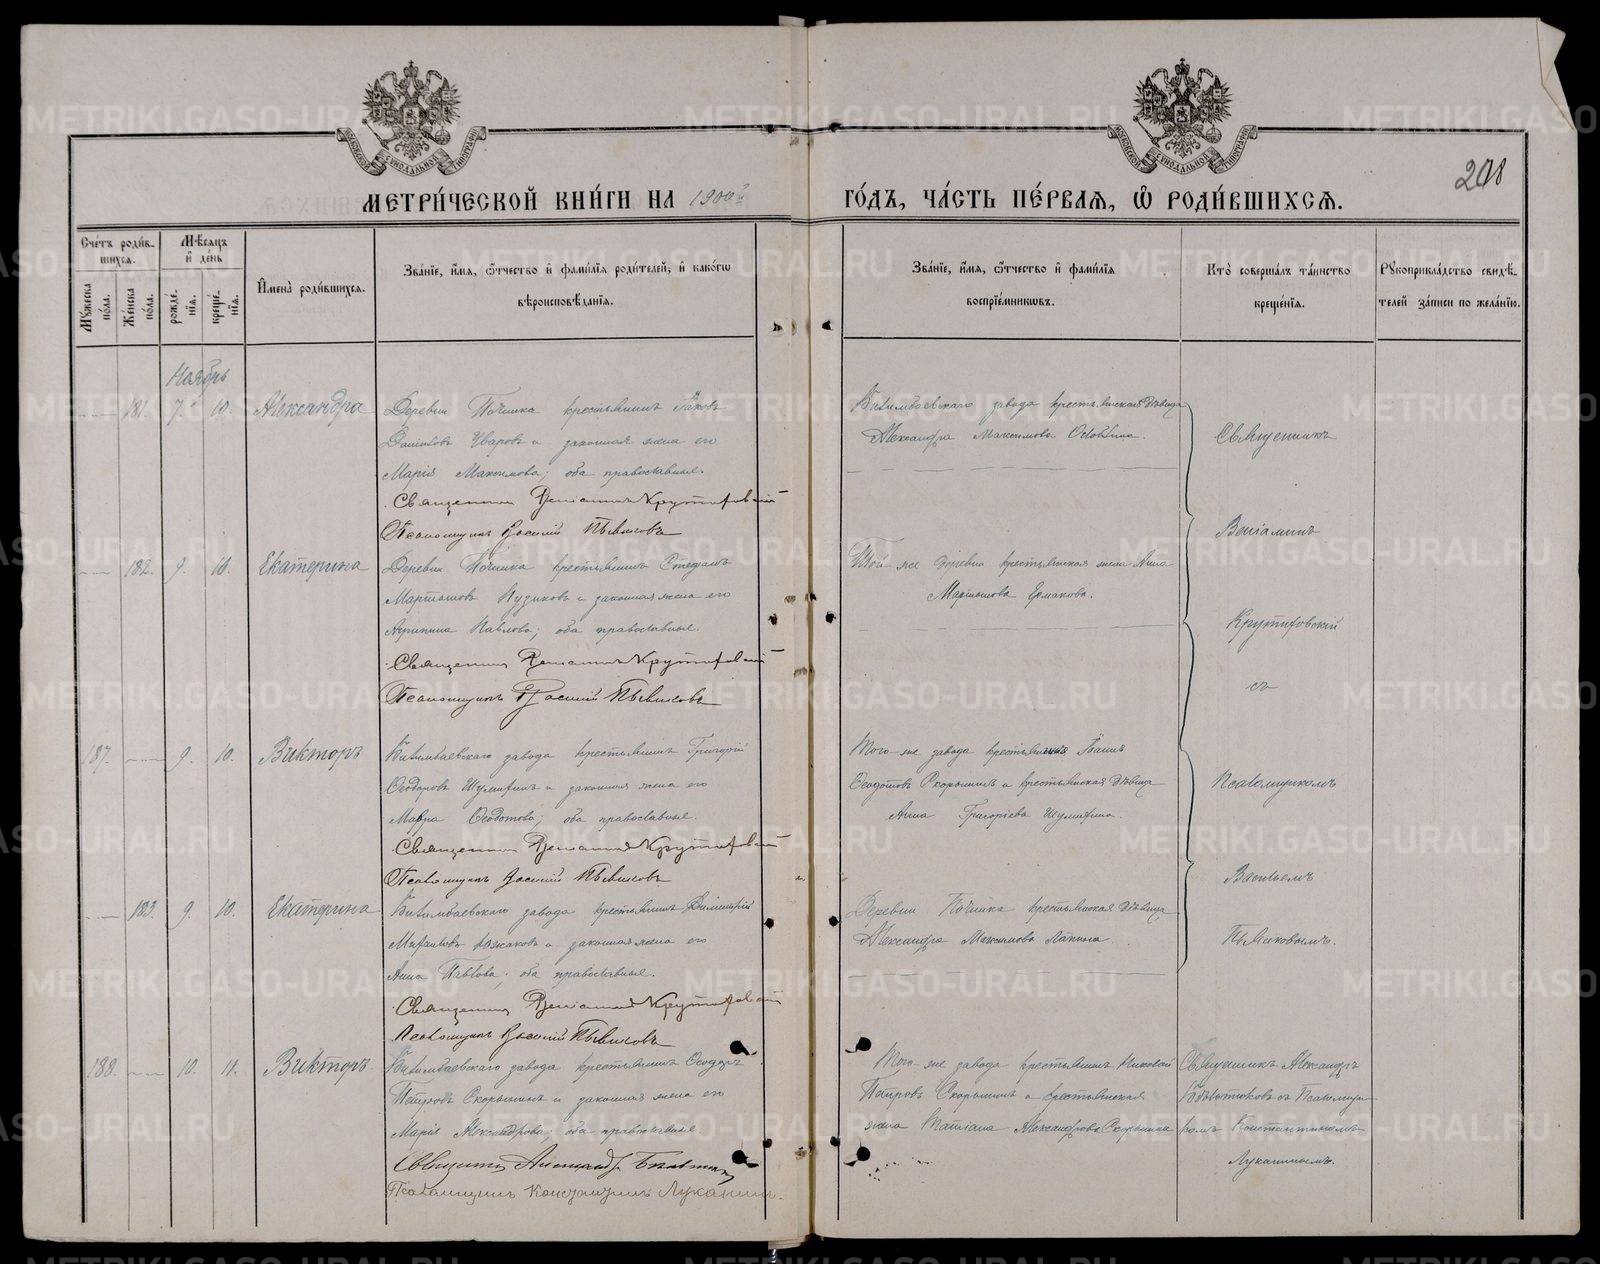 218
МЕТРИ́ЧЕСКОЙ КНИ́ГИ НА 1900й ГО́ДЪ, ЧА́СТЬ ПЕ́РВАЯ, Ѡ҆ РОДИ́ВШИХСѦ.
Сче́тъ роди́в-
шихсѧ.
Мꙋ́жеска
по́ла.
Же́нска
по́ла.
Мѣ́сѧцъ
и҆ де́нь
рожде́-
нїѧ.
креще́-
нїѧ.
И҆мена̀ роди́вшихсѧ.
Зва́нїе, и҆́мѧ, ѻ҆́тчество и҆ фами́лїѧ роди́телей, и҆ како́гѡ
вѣроисповѣ́данїѧ.
Зва́нїе, и҆́мѧ, ѻ҆́тчество и҆ фами́лїѧ
воспрїе́мникѡвъ.
Кто̀ соверша́лъ та́инство
креще́нїѧ.
Рꙋкоприкла́дство свидѣ́-
телей за́писи по жела́нїю.
Ноябрь
181. 7. 10. Александра
Деревни Починка крестьянинъ Іаковъ
Даніиловъ Уваровъ и законная жена его
Марія Максимова; оба православные.
Священникъ Веніаминъ Крутиховскій
Псаломщикъ Василій Пьянковъ
Билимбаевскаго завода крестьянская дѣвица
Александра Максимова
182. 9. 10. Екатерина
Деревни Починка крестьянинъ Стефанъ
Мартиновъ Пузиковъ и законная жена его
Агрипина Павлова; оба православные.
Священникъ Веніаминъ Крутиховскій
Псаломщикъ Василій Пьянковъ
Той-же деревни крестьянская жена Анна
Мартинова Ермакова.
187. 9. 10. Викторъ
Билимбаевскаго завода крестьянинъ Григорій
Ѳеодоровъ Шумихинъ и законная жена его
Мавра Ѳедотова; оба православные.
Священникъ Веніаминъ Крутиховскій
Псаломщикъ Василій Пьянковъ
Того-же завода крестьянинъ
Скорынинъ и крестьянская дѣвица
Анна Григоріева Шумихина.
183. 9. 10. Екатерина
Билимбаевскаго завода крестьянинъ Димитрій
и законная жена его
Анна Павлова; оба православные.
Священникъ Веніаминъ Крутиховскій
Псаломщикъ Василій Пьянковъ
Деревни Починка крестьянская дѣвица
Александра Максимова
Священникъ
Веніаминъ
Крутиховскій
съ
Псаломщикомъ
Васильемъ
Пьянковымъ.
188. 10. 11. Викторъ
Билимбаевскаго завода крестьянинъ Ѳеодоръ
Петровъ Скорынинъ и законная жена его
Марія Александрова; оба православные
Священникъ Александръ
Псаломщикъ Константинъ Луканинъ.
Того-же завода крестьянинъ Николай
Петровъ Скорынинъ и крестьянская
жена Татіана Александрова Скорынина
Священникъ Александръ
съ Псаломщи-
комъ Константиномъ
Луканинымъ.
METRIKI.GASO-URAL.RU